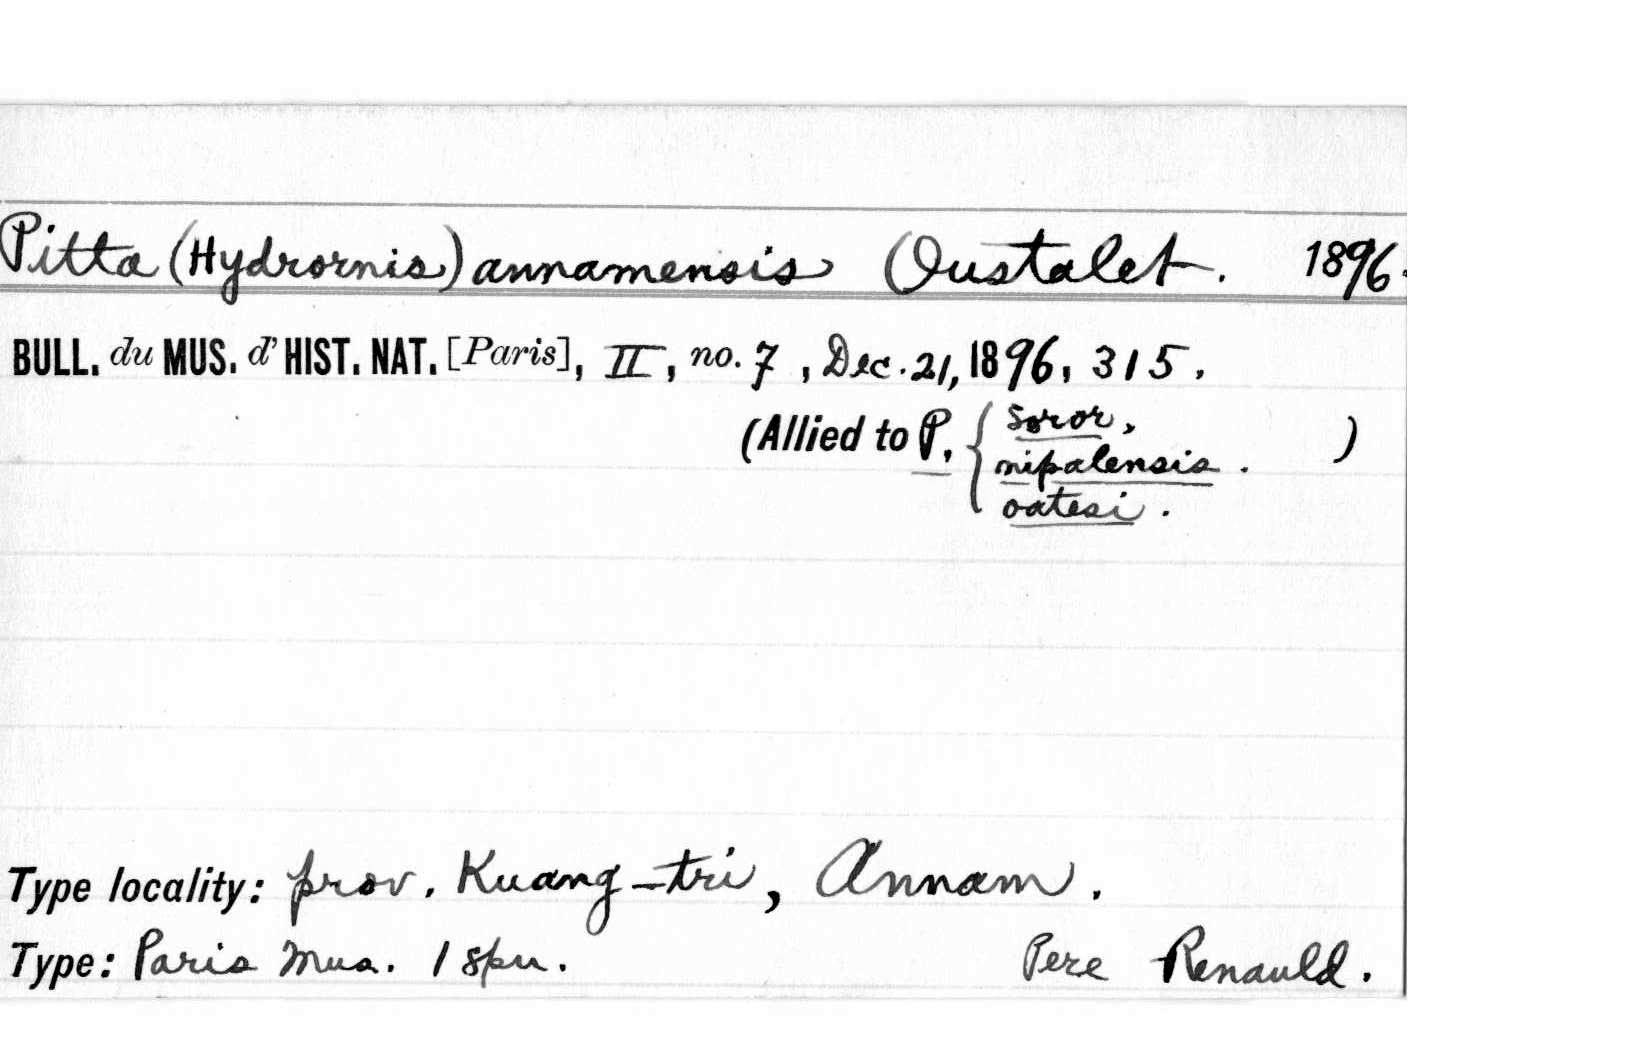 Pitta (Hydrornis) annamensis Oustalet. 1896.
BULL. du MUS. d' HIST. NAT. [Paris], II, no. 7, Dec. 21, 1896, 315.
(Allied to P. { soror, )
nipalensis.
oatesi.
Type locality: prov. Kuang-tri, Annam.
Type: Paris Mus. 1 spn. Pere Renauld.